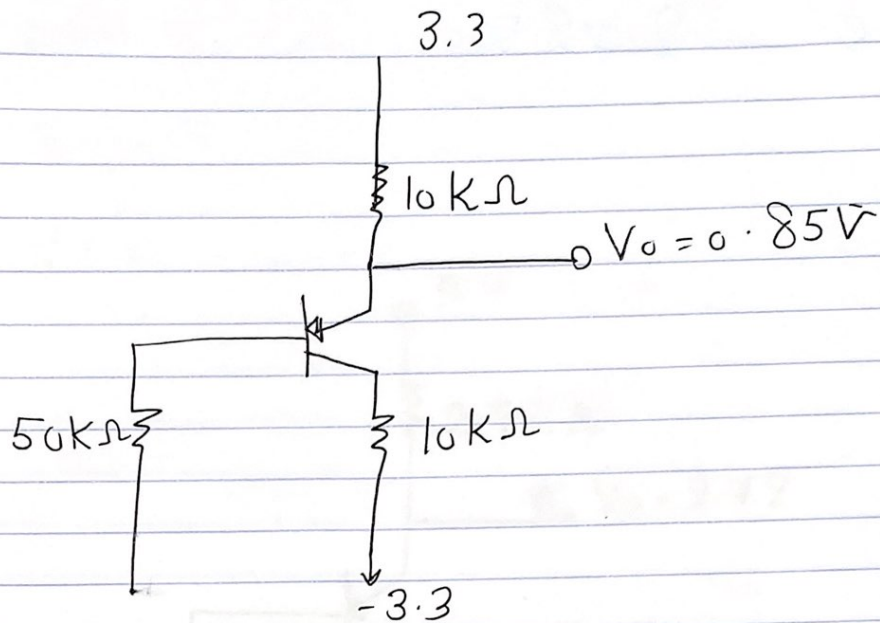 3.3
10KΩ
Vo = 0.85V
50KΩ
10KΩ
-3.3